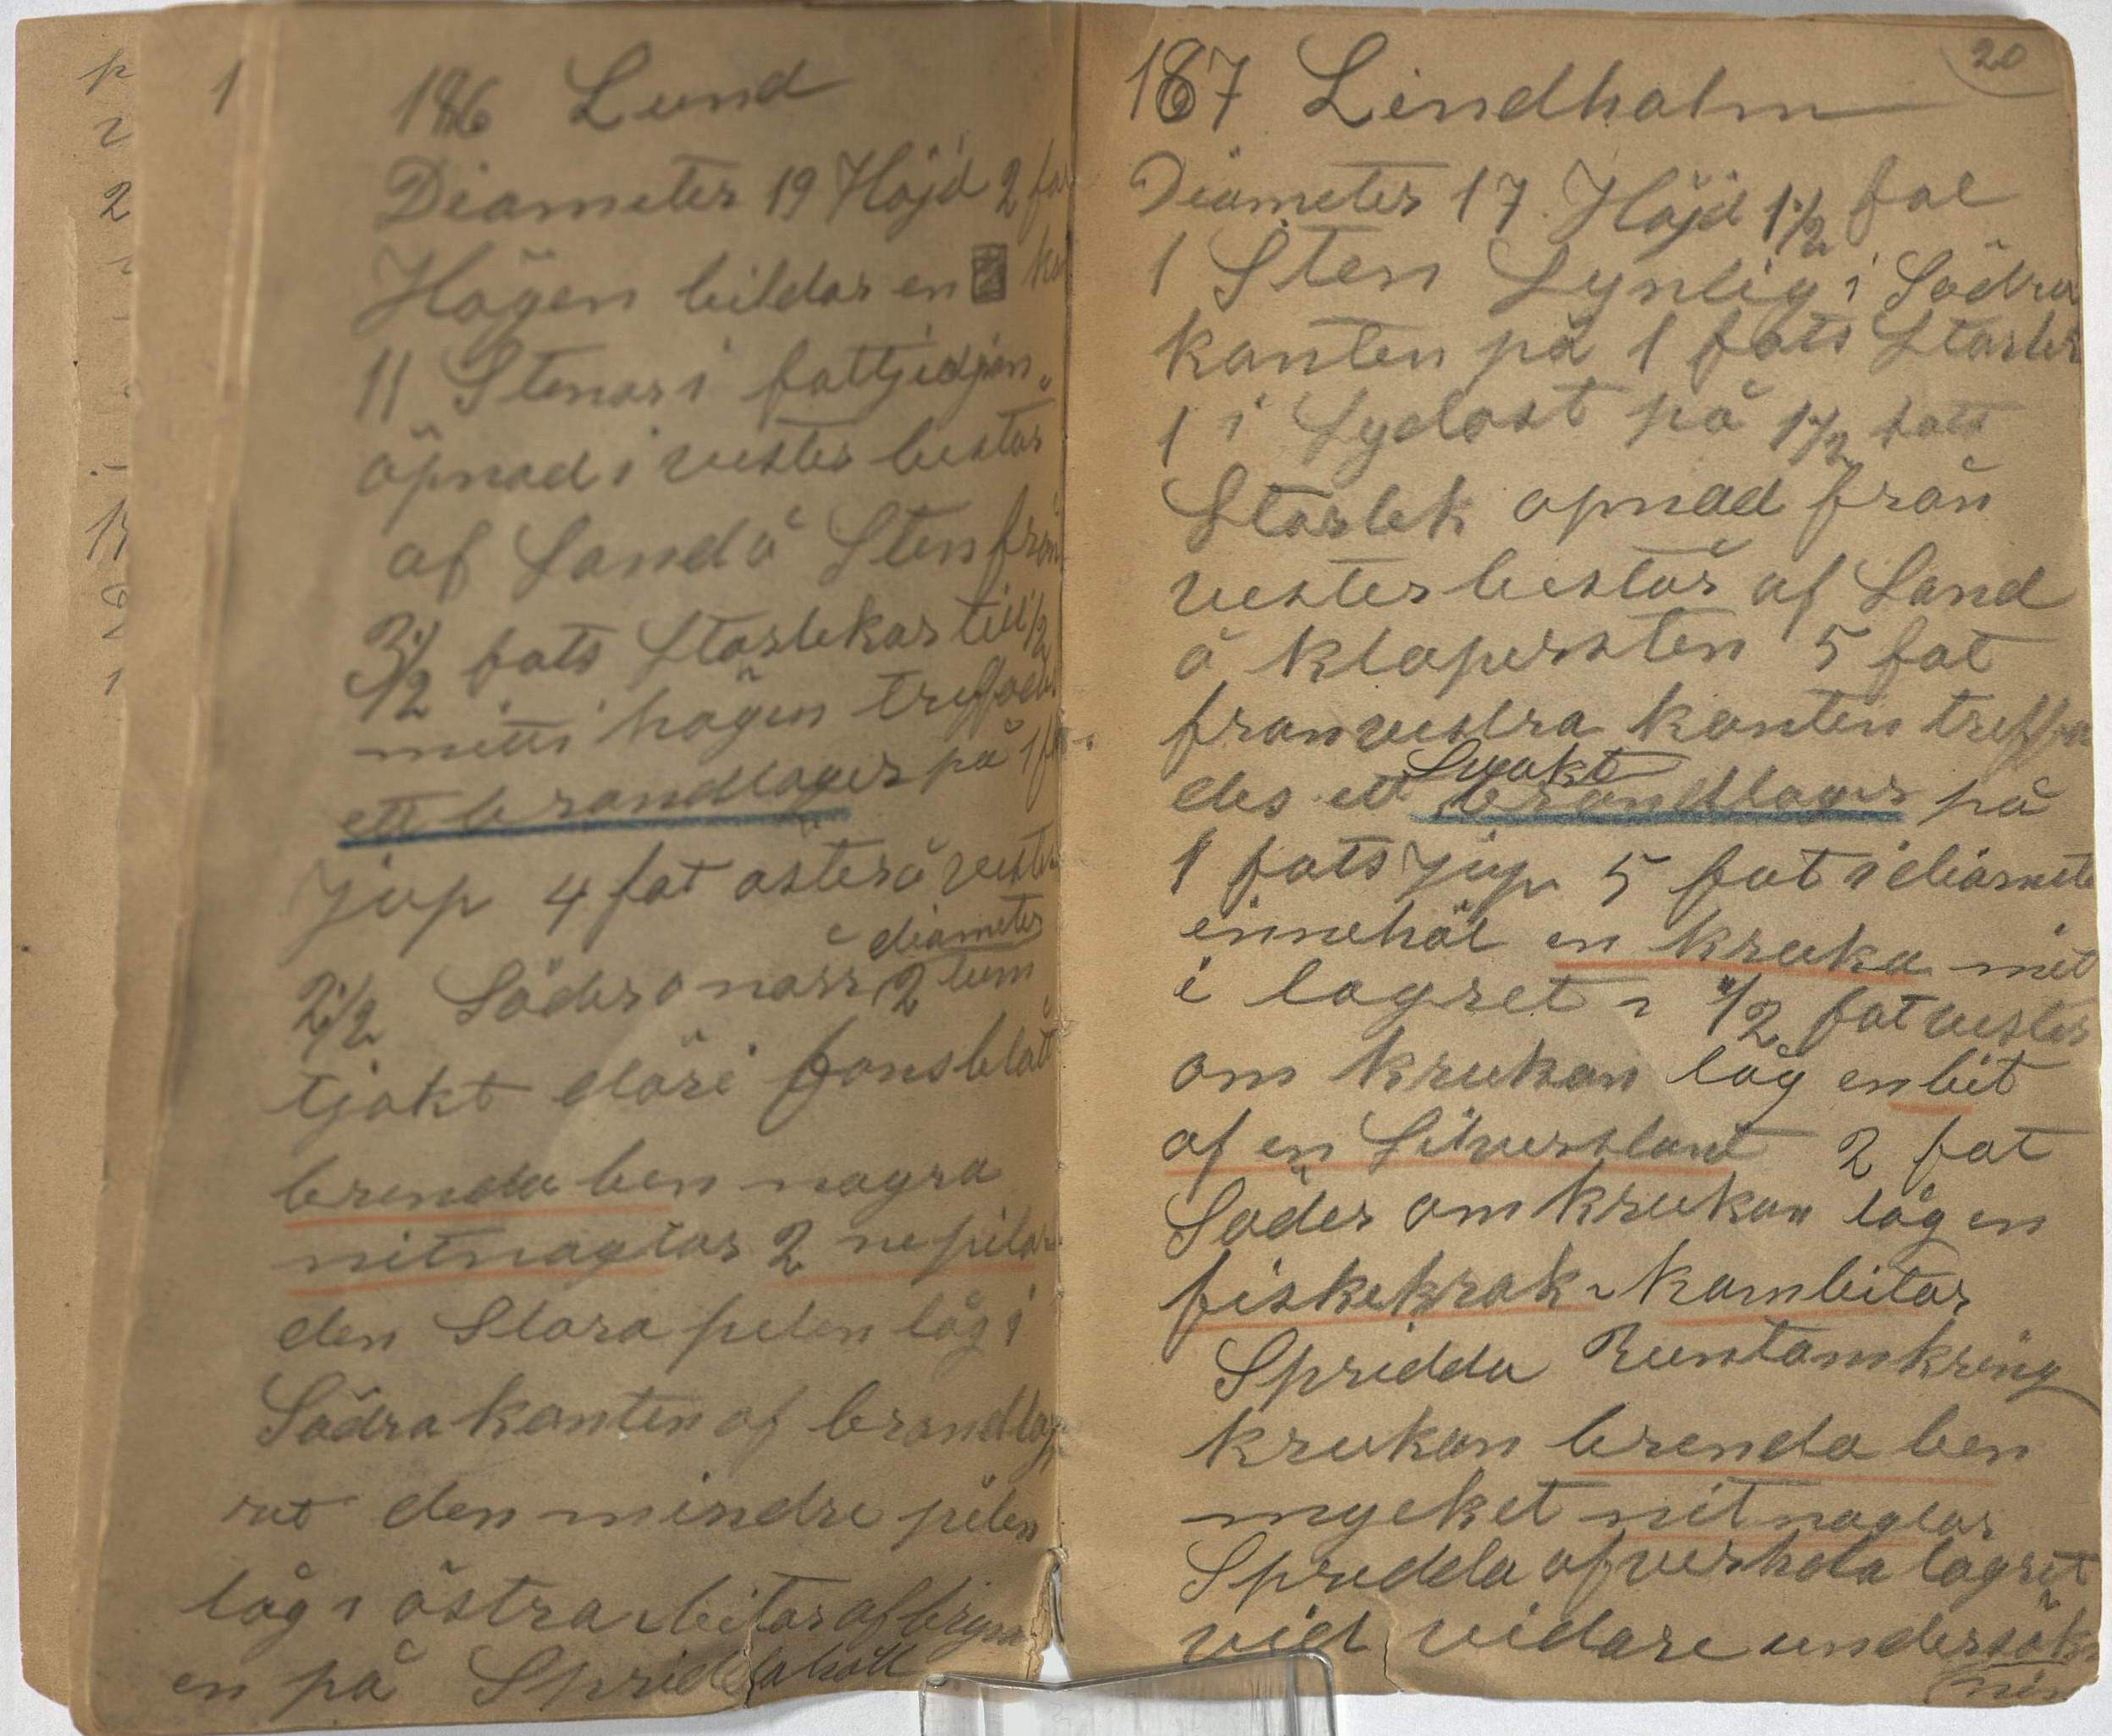 1
186 Lund
Diameter 19 Höjd 2 fot
Högen bildar en
11 Stenar i fottjedjan
öpnad i vester bestar
af Sand å Sten från
3 1/2 fots Storlekar till 1/2
mitti högen treffades
ett brandlager på 1 fots
jup 4 fot öster å vester
2 1/2 Söder o norr 2 tum
diameter
tjokt däri fans blott
brenda ben nogra
nitnaglar 2 nepilar
den Stora pilen låg i
Södra kanten af brandlag
ret den mindre pilen
låg i östra bitar af
en på Spridda håll
20
187 Lindholm
Diameter 17 Höjd 1 1/2 fot
1 Sten Synlig i Södra
kanten på 1 fots Storlek
1 i Sydost på 1 1/2 fots
Storlek opnad från
vester består af Sand
å klapersten 5 fot
fran vestra kanten treffa
des ett Svakt brandlager på
1 fots jup 5 fot i diameter
einnehöl en kruka mit
i lagret 1/2 fot vester
om krukan låg en bit
af en Silverslant 2 fot
Söder om krukan låg en
fiskekrok kambitar
Spridda Runtomkring
krukan brenda ben
mycket nitnaglar
Spridda öfver hela lagret
vid vidare undersök
nin